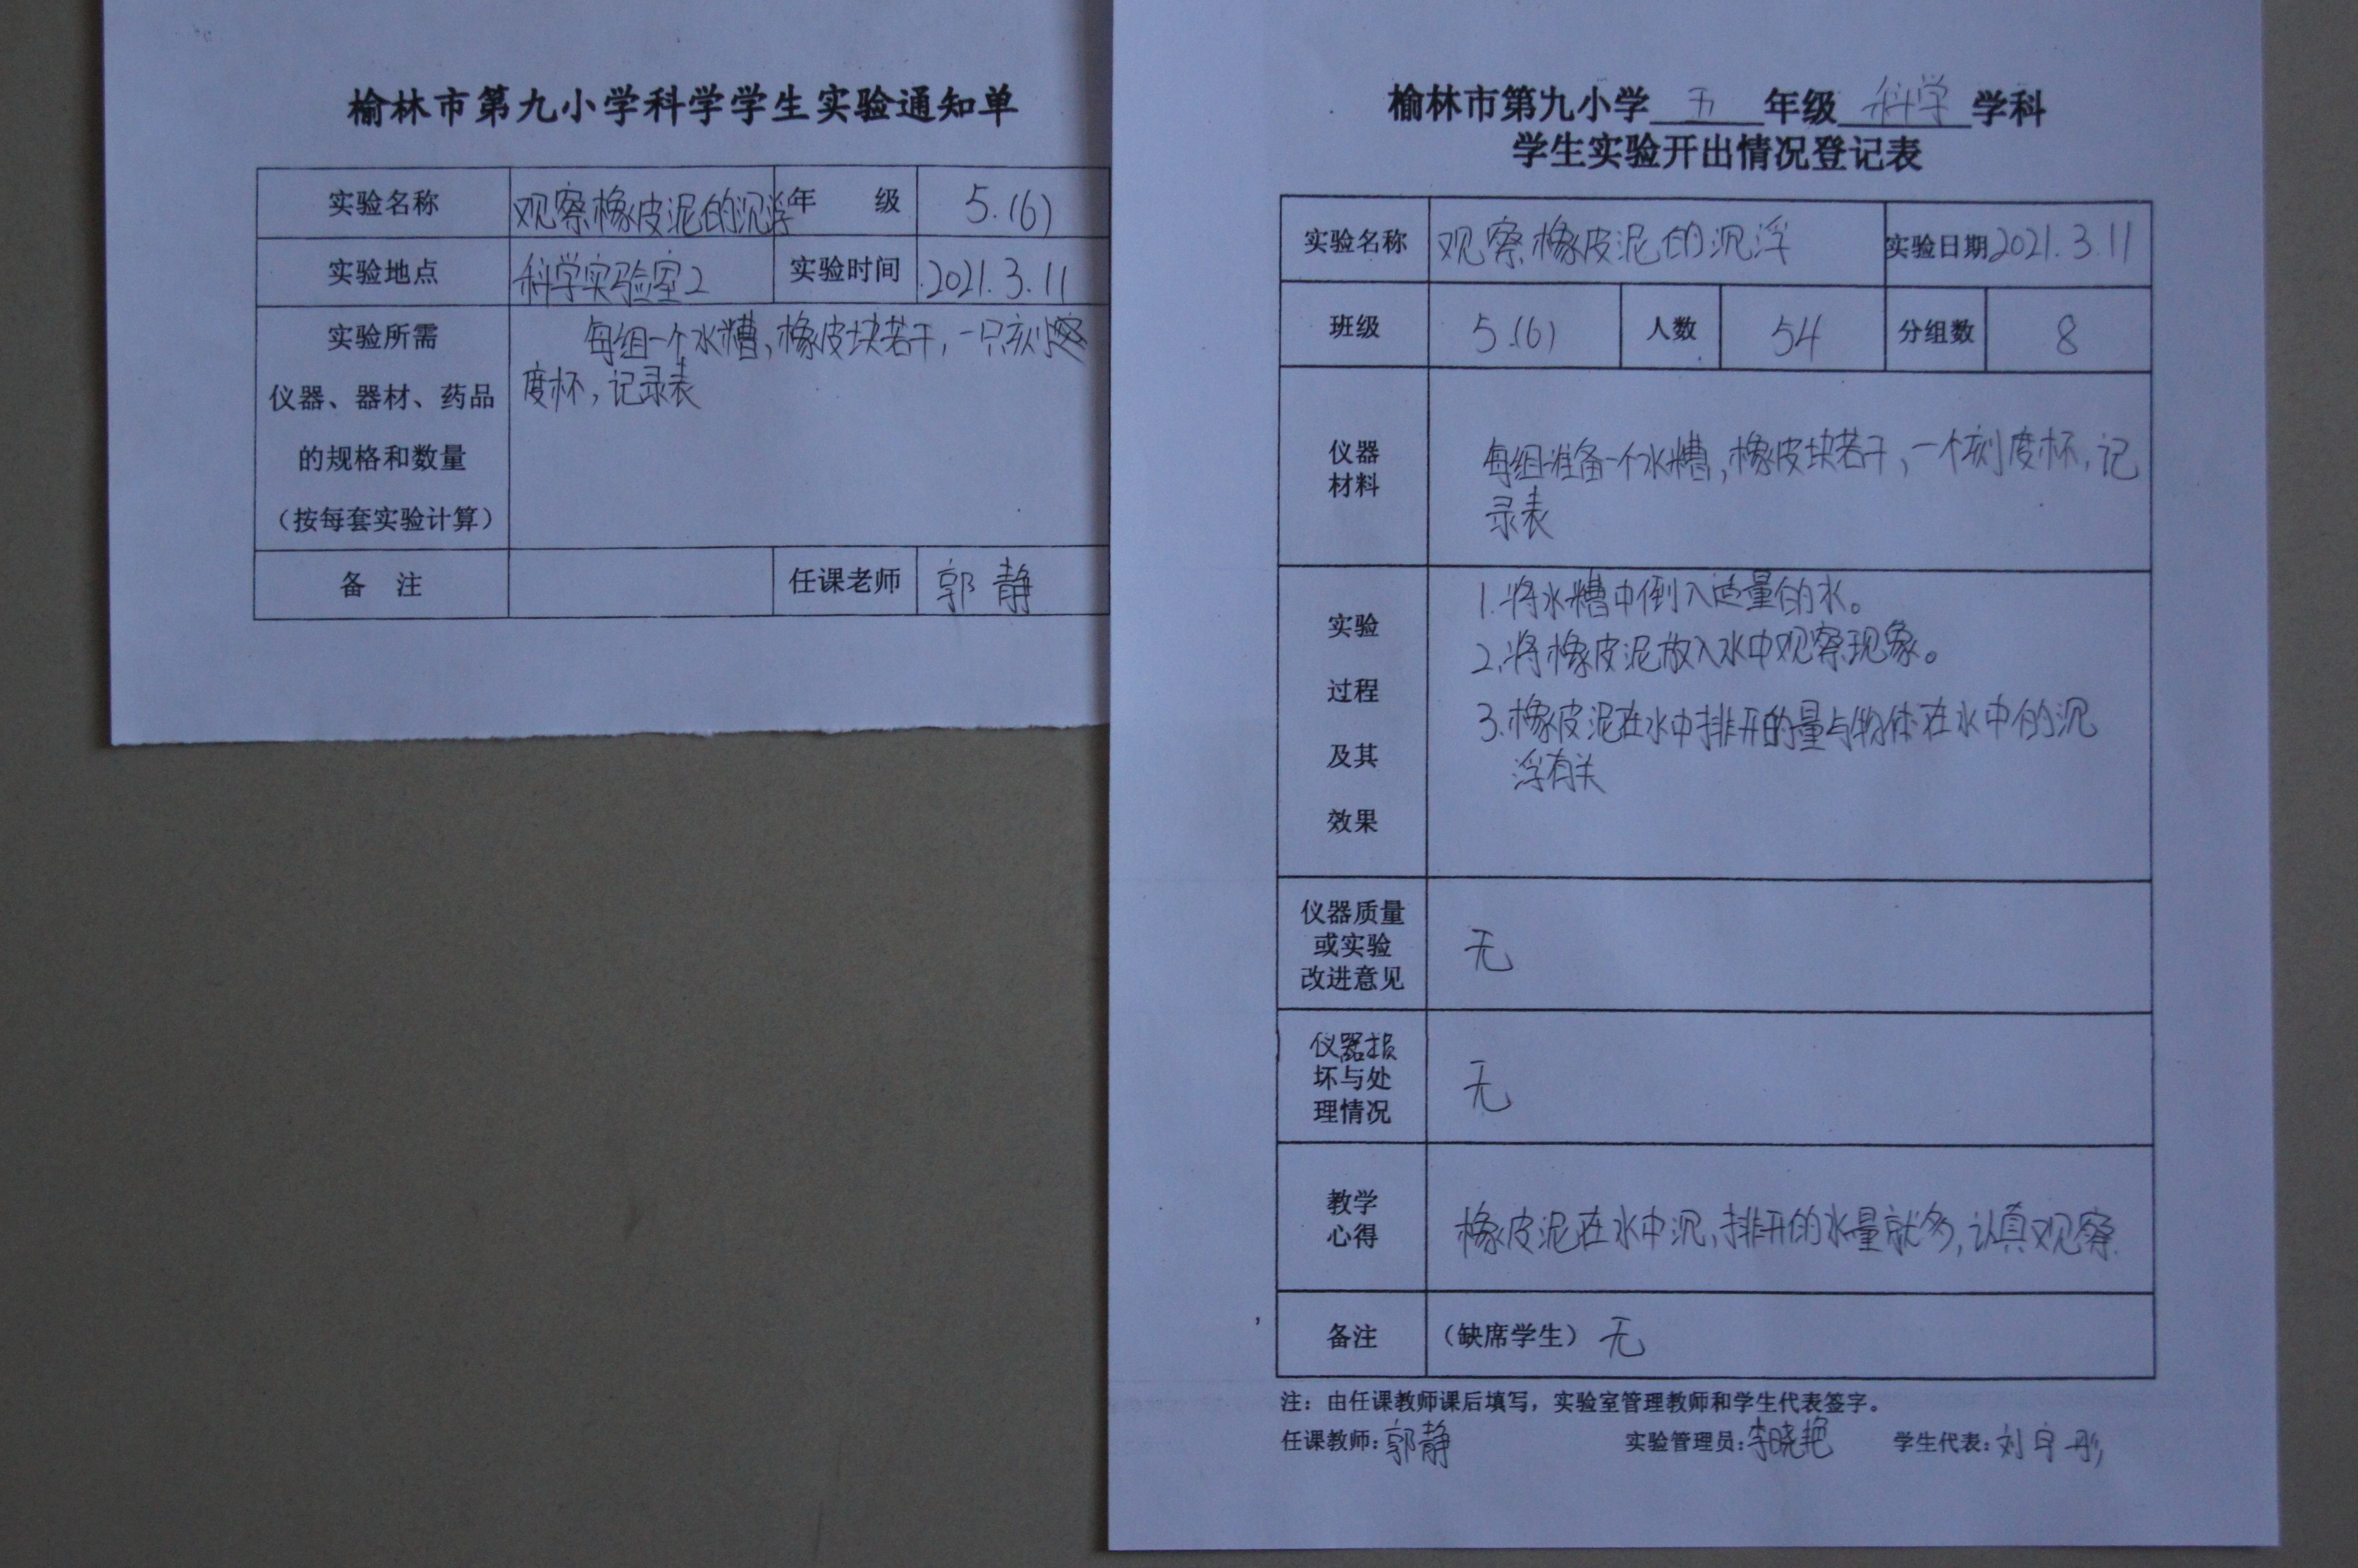 榆林市第九小学科学学生实验通知单
实验名称 观察橡皮泥的沉浮 年 级 5.(6)
实验地点 科学实验室2 实验时间 2021.3.11
实验所需
仪器、器材、药品
的规格和数量
（按每套实验计算）
每组一个水槽,橡皮块若干,一只刻
度杯,记录表
备 注 任课老师 郭静
榆林市第九小学 五 年级 科学 学科
学生实验开出情况登记表
实验名称 观察橡皮泥的沉浮 实验日期 2021.3.11
班级 5.(6) 人数 54 分组数 8
仪器
材料
每组准备一个水槽,橡皮块若干,一个刻度杯,记
录表
实验
过程
及其
效果
1.将水槽中倒入适量的水。
2.将橡皮泥放入水中观察现象。
3.橡皮泥在水中排开的量与物体在水中的沉
浮有关
仪器质量
或实验
改进意见
无
仪器损
坏与处
理情况
无
教学
心得
橡皮泥在水中沉,排开的水量就多,认真观察.
备注 （缺席学生） 无
注：由任课教师课后填写，实验室管理教师和学生代表签字。
任课教师:郭静 实验管理员:李晓艳 学生代表:刘